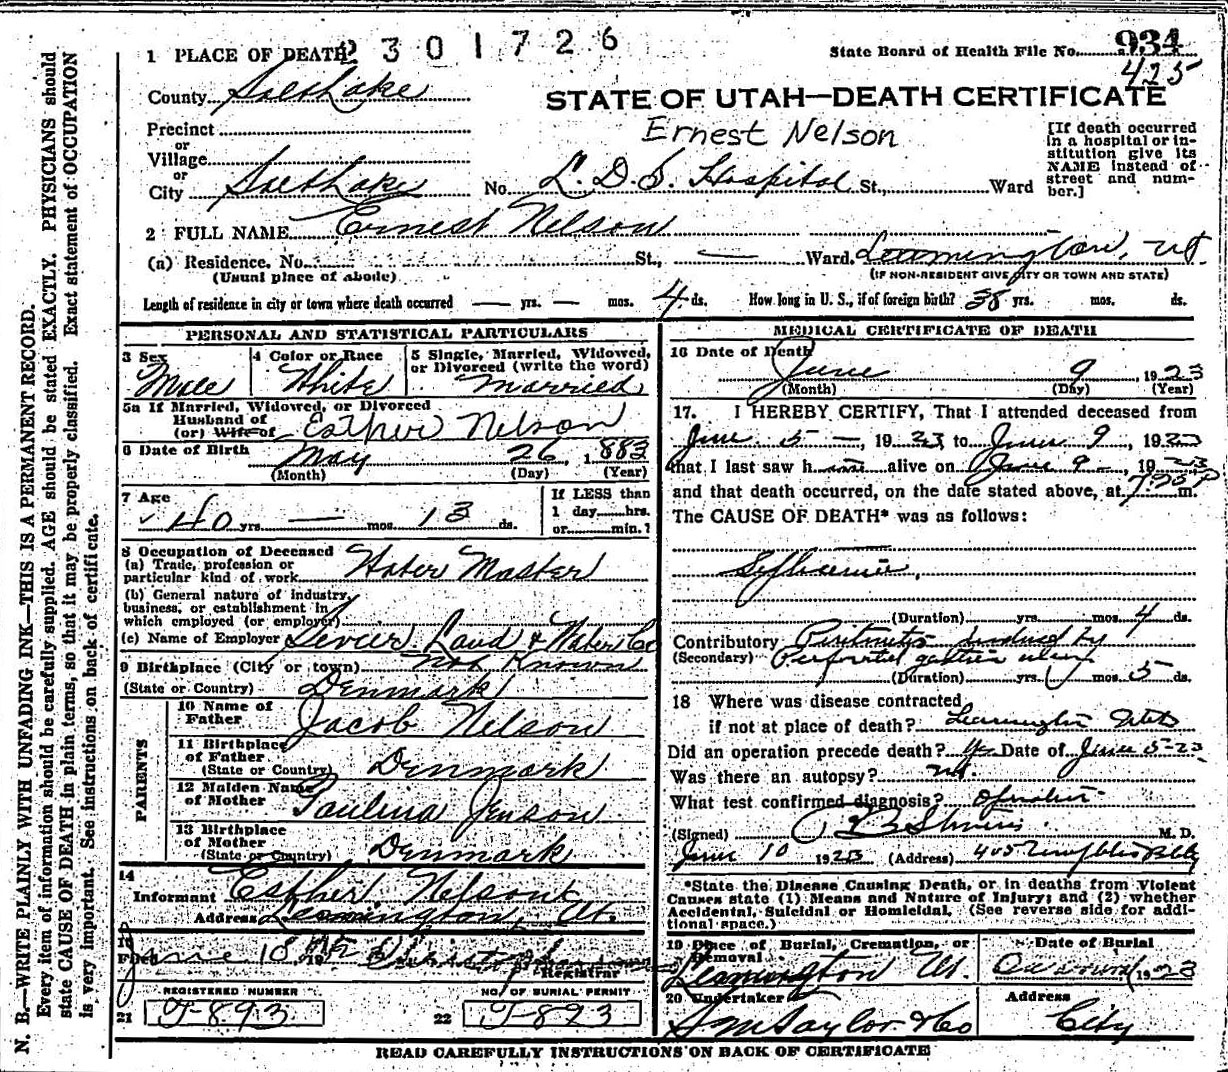 2301726
State Board of Health File No. 934
425
1 PLACE OF DEATH
County Salt Lake
STATE OF UTAH—DEATH CERTIFICATE
Ernest Nelson
Precinct
or
Village
or
City Salt Lake No. L. D. S. Hospital St., Ward
[If death occurred
in a hospital or in-
stitution give its
NAME instead of
street and num-
ber.]
2 FULL NAME Ernest Nelson
(a) Residence. No. St., — Ward. Leamington, Ut.
(Usual place of abode)
(IF NON-RESIDENT GIVE CITY OR TOWN AND STATE)
Length of residence in city or town where death occurred — yrs. — mos. 4 ds. How long in U. S., if of foreign birth? 38 yrs. mos. ds.
PERSONAL AND STATISTICAL PARTICULARS
3 Sex
Male
4 Color or Race
White
5 Single, Married, Widowed,
or Divorced (write the word)
Married
5a If Married, Widowed, or Divorced
Husband of
(or) Wife of Esther Nelson
6 Date of Birth May 26, 1883
(Month) (Day) (Year)
7 Age
40 yrs. — mos. 13 ds.
If LESS than
1 day hrs.
or min.?
8 Occupation of Deceased
(a) Trade, profession or
particular kind of work Water Master
(b) General nature of industry,
business, or establishment in
which employed (or employer)
(c) Name of Employer Sevier Land & Water Co
9 Birthplace (City or town) Not Known
(State or Country) Denmark
PARENTS
10 Name of
Father Jacob Nelson
11 Birthplace
of Father
(State or Country) Denmark
12 Maiden Name
of Mother Paulina Jenson
13 Birthplace
of Mother
(State or Country) Denmark
14
Informant Esther Nelson
Address Leamington, Ut.
15
Filed June 10 19
Registrar
REGISTERED NUMBER
21 J-893
NO. OF BURIAL PERMIT
22 J-893
MEDICAL CERTIFICATE OF DEATH
16 Date of Death
June 9, 1923
(Month) (Day) (Year)
17. I HEREBY CERTIFY, That I attended deceased from
June 5 —, 1923, to June 9, 1923
that I last saw him alive on June 9 —, 1923
and that death occurred, on the date stated above, at m.
The CAUSE OF DEATH* was as follows:
(Duration) yrs. mos. 4 ds.
Contributory Peritonitis produced by
(Secondary) Perforated gastric ulcer
(Duration) yrs. mos. 5 ds.
18 Where was disease contracted
if not at place of death? Leamington Utah
Did an operation precede death? Yes Date of June 5-23
Was there an autopsy? no.
What test confirmed diagnosis? Operation
(Signed) M. D.
June 10 1923 (Address) 405
*State the Disease Causing Death, or in deaths from Violent
Causes state (1) Means and Nature of Injury; and (2) whether
Accidental, Suicidal or Homicidal. (See reverse side for addi-
tional space.)
19 Place of Burial, Cremation, or
Removal
Leamington Ut.
Date of Burial
1923
20 Undertaker
S M Taylor & Co
Address
City
READ CAREFULLY INSTRUCTIONS ON BACK OF CERTIFICATE
N. B.—WRITE PLAINLY WITH UNFADING INK—THIS IS A PERMANENT RECORD.
Every item of information should be carefully supplied. AGE should be stated EXACTLY. PHYSICIANS should
state CAUSE OF DEATH in plain terms, so that it may be properly classified. Exact statement of OCCUPATION
is very important. See instructions on back of certificate.